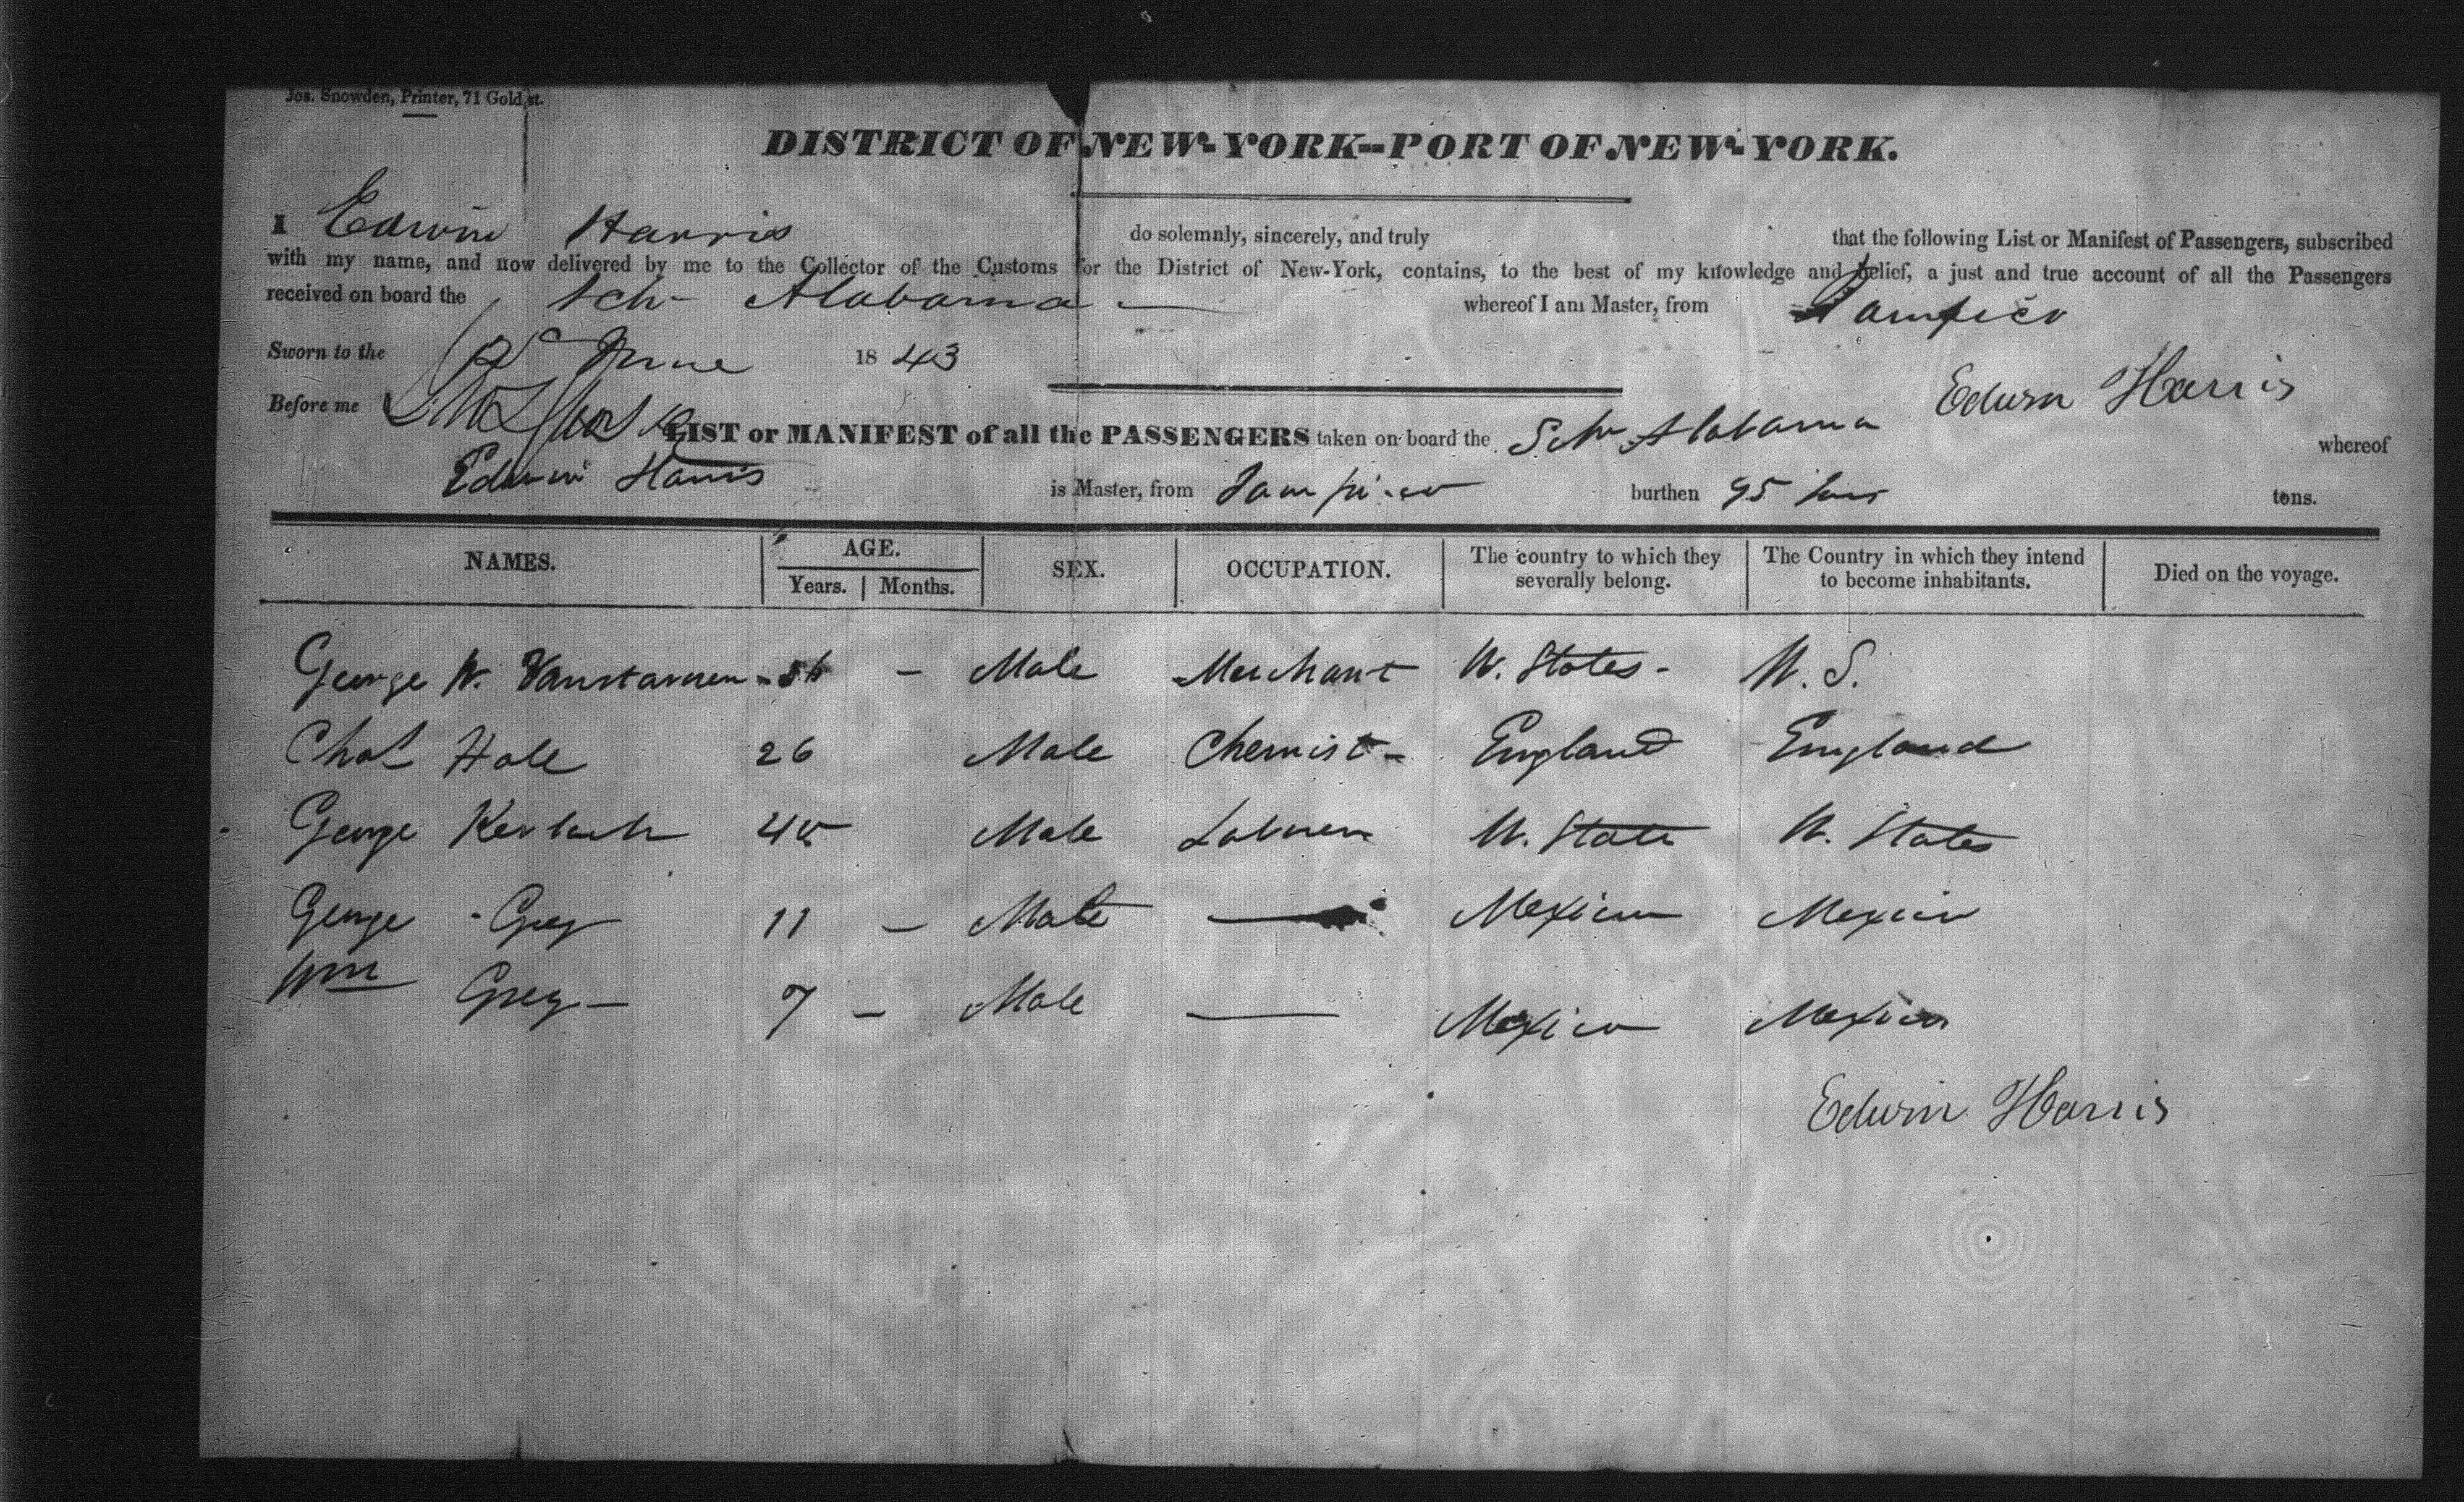 Jos. Snowden, Printer, 71 Gold st.
DISTRICT OF NEW-YORK--PORT OF NEW-YORK.
I Edwin Harris do solemnly, sincerely, and truly that the following List or Manifest of Passengers, subscribed
with my name, and now delivered by me to the Collector of the Customs for the District of New-York, contains, to the best of my knowledge and belief, a just and true account of all the Passengers
received on board the Sch Alabama whereof I am Master, from Tampico
Sworn to the June 1843
Edwin Harris
Before me
LIST or MANIFEST of all the PASSENGERS taken on board the Schr Alabama whereof
Edwin Harris is Master, from Tampico burthen 95 tons tons.
NAMES. AGE. Years. Months. SEX. OCCUPATION. The country to which they severally belong. The Country in which they intend to become inhabitants. Died on the voyage.
George W. - Male Merchant U. States - U. S.
Chas Hale 26 Male Chemist - England England
George 45 Male U. State U. States
George Grey 11 - Male — Mexico Mexico
Wm Grey - 7 - Male — Mexico Mexico
Edwin Harris